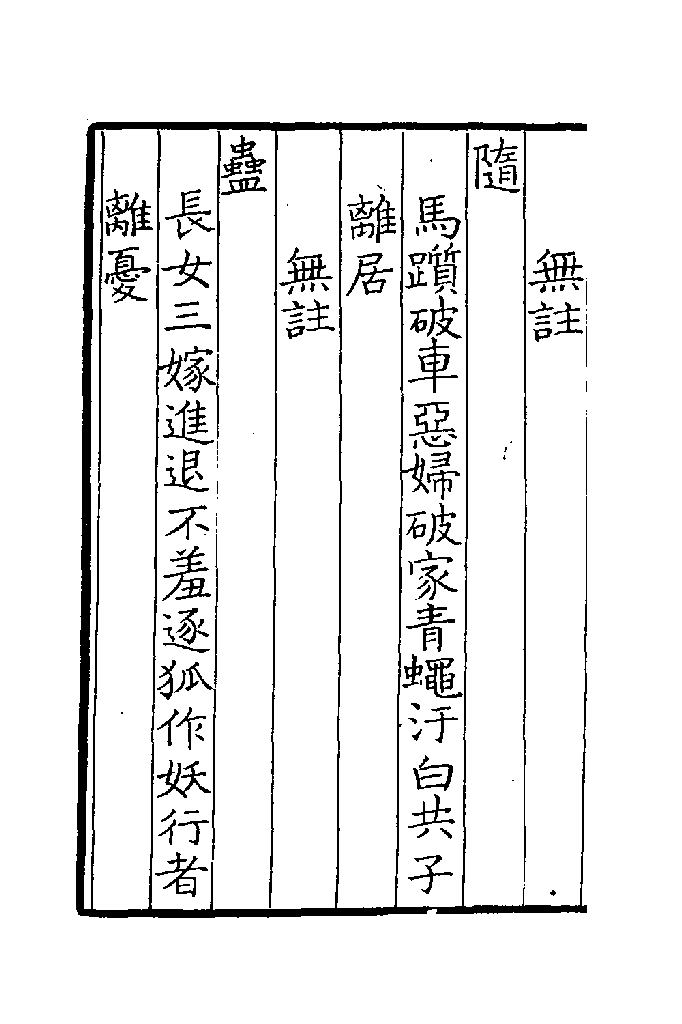 無註
隨
馬躓破車惡婦破家青蠅汙白共子
離居
無註
蠱
長女三嫁進退不羞逐狐作妖行者
離憂